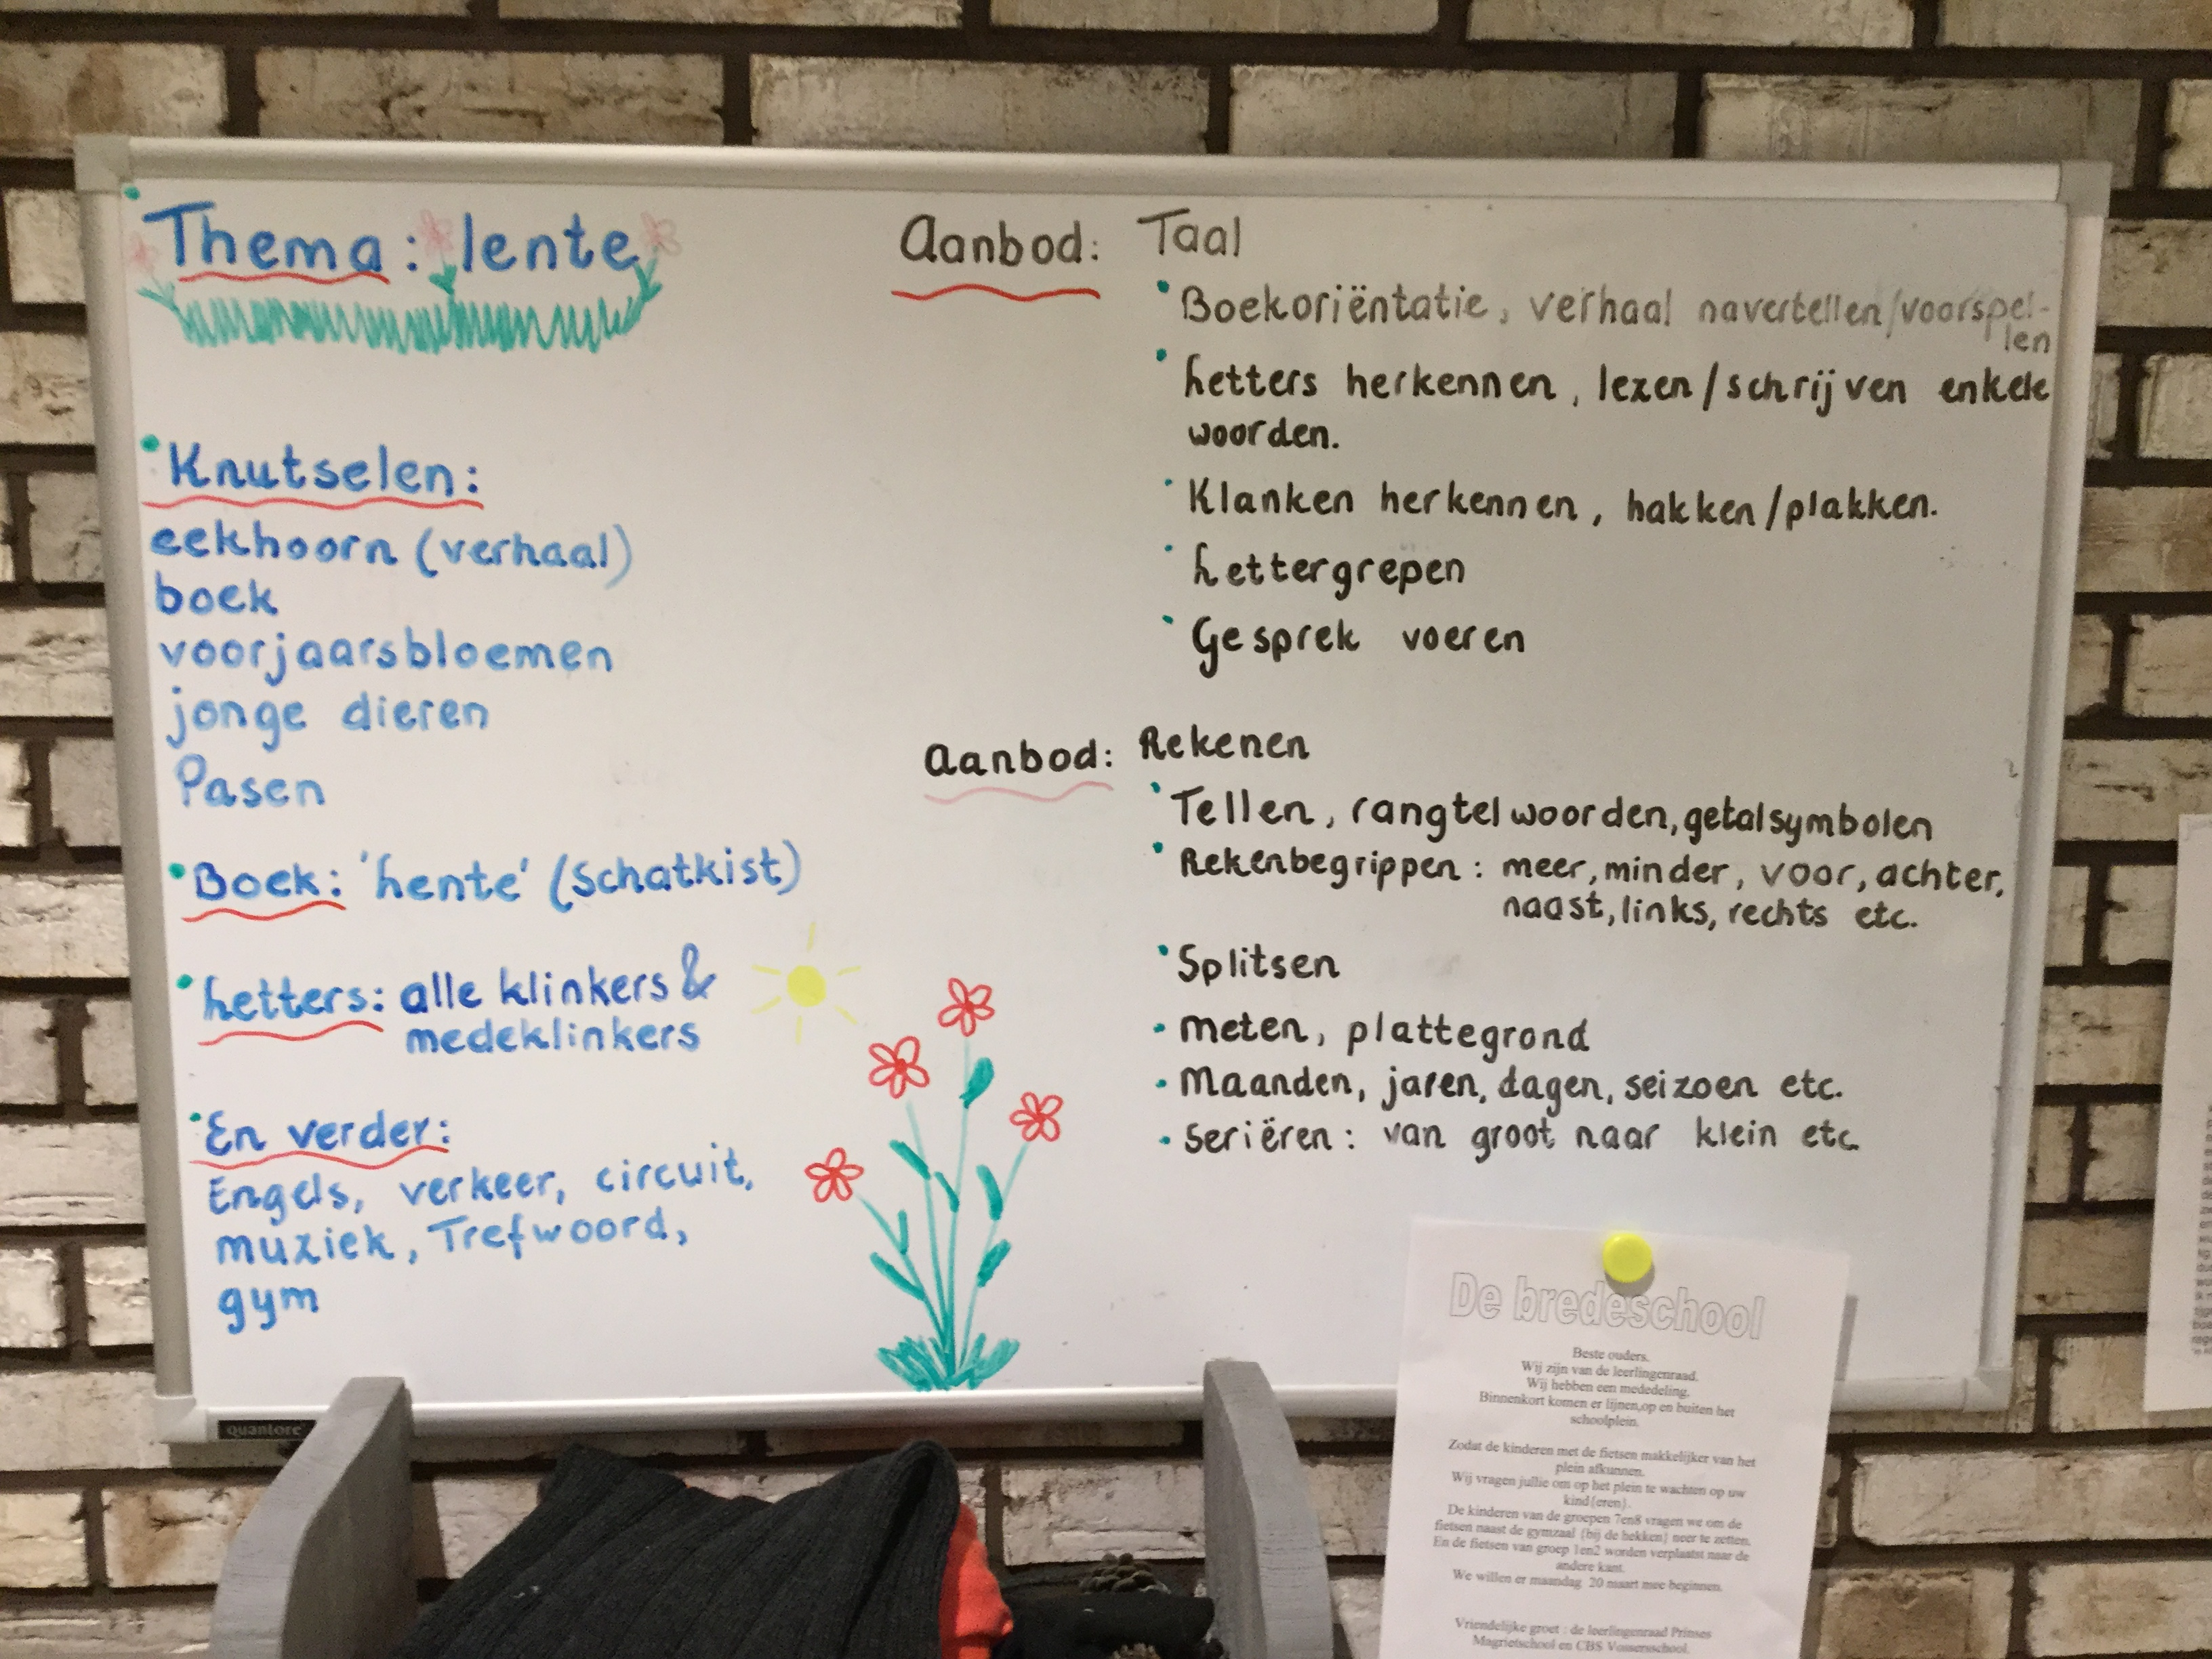 Thema: lente
• Knutselen:
eekhoorn (verhaal)
boek
voorjaarsbloemen
jonge dieren
Pasen
• Boek: 'Lente' (Schatkist)
• Letters: alle klinkers &
medeklinkers
• En verder:
Engels, verkeer, circuit,
muziek, Trefwoord,
gym
Aanbod: Taal
• Boekoriëntatie, verhaal navertellen/voorspel-
len
• Letters herkennen, lezen/schrijven enkele
woorden.
• Klanken herkennen, hakken/plakken.
• Lettergrepen
• Gesprek voeren
Aanbod: Rekenen
• Tellen, rangtelwoorden, getalsymbolen
• Rekenbegrippen: meer, minder, voor, achter,
naast, links, rechts etc.
• Splitsen
• meten, plattegrond
• Maanden, jaren, dagen, seizoen etc.
• seriëren: van groot naar klein etc
quantore
De bredeschool
Beste ouders.
Wij zijn van de leerlingenraad.
Wij hebben een mededeling.
Binnenkort komen er lijnen,op en buiten het
schoolplein.
Zodat de kinderen met de fietsen makkelijker van het
plein afkunnen.
Wij vragen jullie om op het plein te wachten op uw
kind{eren}.
De kinderen van de groepen 7en8 vragen we om de
fietsen naast de gymzaal {bij de hekken} neer te zetten.
En de fietsen van groep 1en2 worden verplaatst naar de
andere kant.
We willen er maandag 20 maart mee beginnen.
Vriendelijke groet : de leerlingenraad Prinses
Magrietschool en CBS